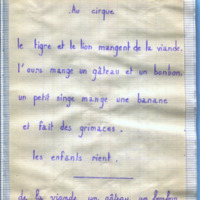 Au cirque
le tigre et le lion mangent de la viande.
l'ours mange un gâteau et un bonbon.
un petit singe mange une banane
et fait des grimaces.
les enfants rient.
de la viande un gâteau un bonbon